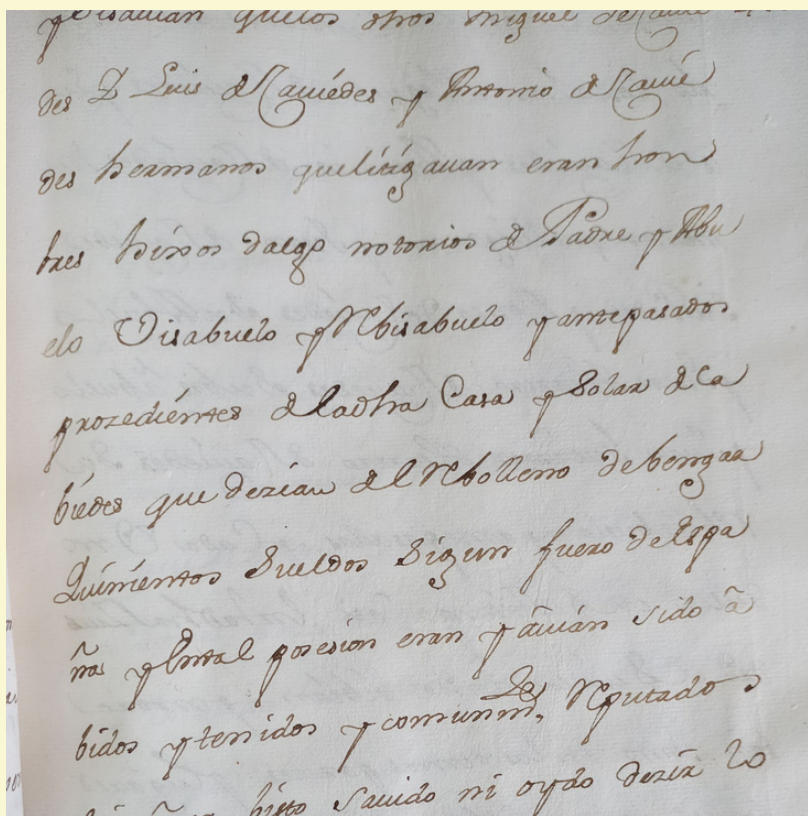 y Visauian quelos dhos Miguel de Cauie
des D Luis de Cauiedes y Antonio de Cauie
des hermanos quelitigauan eran hon
bres hixos dalgo notorios de Padre y Abu
elo Visabuelo y Rebisabuelo y antepasados
prozedientes de la dha Casa y Solar de Ca
biedes que dezian del Rebolleno debengar
Quinientos Sueldos Sigun fuero de Espa
ña y en tal posesion eran y auian sido a
bidos y tenidos y comunmte Reputados
bisto sauido ni oydo dezir lo